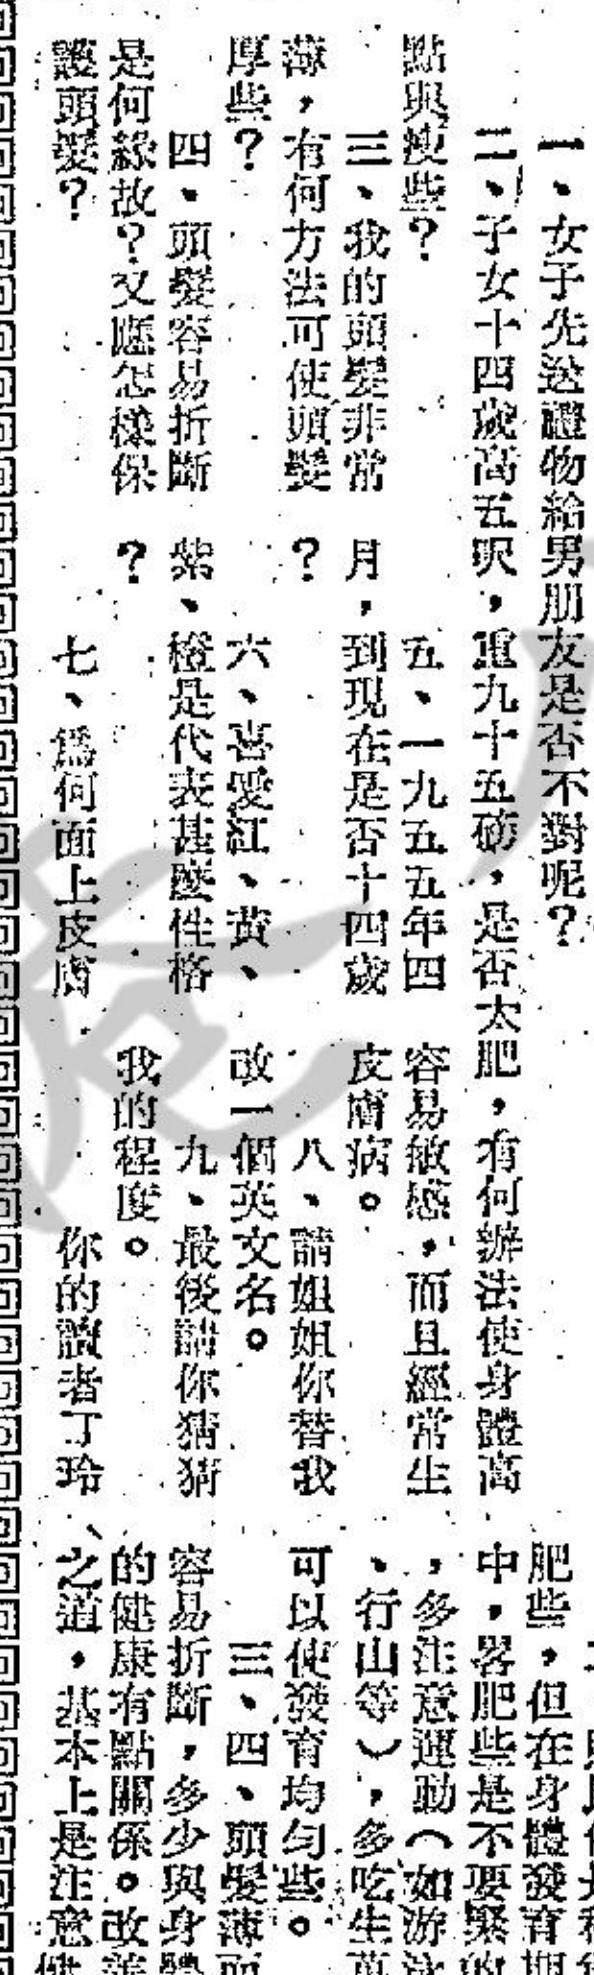 一、女子先送禮物給男朋友是否不對呢？
二、子女十四歲高五呎，重九十五磅，是否太肥，有何辦法使身體高
點與瘦些？
三、我的頭髮非常
薄，有何方法可使頭髮
厚些？
四、頭髮容易折斷
是何緣故？又應怎樣保
護頭髮？
五、一九五五年四
月，到現在是否十四歲
？
六、喜愛紅、黃、
紫、橙是代表甚麼性格
？
七、爲何面上皮膚
容易敏感，而且經常生
皮膚病。
八、請姐姐你替我
改一個英文名。
九、最後請你猜猜
我的程度。
你的讀者丁玲
肥些，但在身體發育期
中，畧肥些是不要緊的
，多注意運動（如游泳
、行山等），多吃生
可以使發育均勻些。
三、四、頭髮薄而
容易折斷，多少與身體
的健康有點關係。改善
之道，基本上是注意